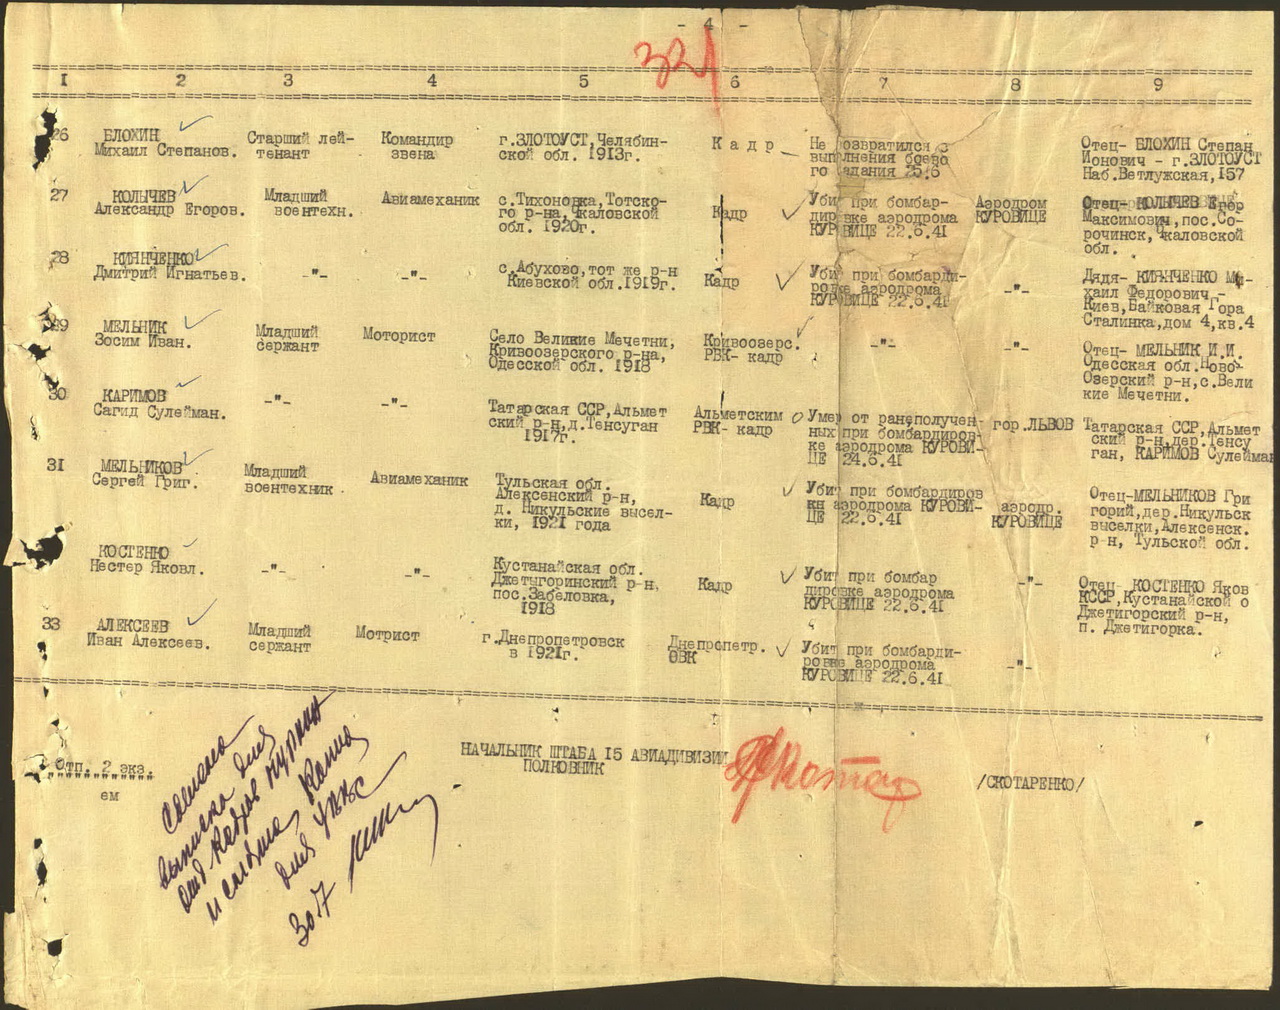 - 4 -
321
I 2 3 4 5 6 7 8 9
26 БЛОХИН Михаил Степанов.
Старший лей-
тенант
Командир
звена
г.ЗЛОТОУСТ,Челябин-
ской обл. 1913г.
К а д р
Не возвратился с
выполнения боево
го задания 25.6
Отец- БЛОХИН Степан
Ионович - г.ЗЛОТОУСТ
Наб.Ветлужская,157
27 КОЛЫЧЕВ
Александр Егоров.
Младший
воентехн.
Авиамеханик
с.Тихоновка,Тотско-
го р-на,Чкаловской
обл. 1920г.
Кадр
Убит при бомбар-
дировке аэродрома
КУРОВИЦЕ 22.6.41
Аэродром
КУРОВИЦЕ
Отец- КОЛЫЧЕВ Егор
Максимович,пос.Со-
рочинск,Чкаловской
обл.
28 КИЯНЧЕНКО
Дмитрий Игнатьев.
-"-
-"-
с.Абухово,тот же р-н
Киевской обл.1919г.
Кадр
Убит при бомбарди-
ровке аэродрома
КУРОВИЦЕ 22.6.41
-"-
Дядя- КИЯНЧЕНКО Ми-
хаил Федорович -
Киев,Байковая Гора
Сталинка,дом 4,кв.4
29 МЕЛЬНИК
Зосим Иван.
Младший
сержант
Моторист
Село Великие Мечетни,
Кривоозерского р-на,
Одесской обл. 1918
Кривоозерс.
РВК- кадр
-"-
-"-
Отец- МЕЛЬНИК И.И.
Одесская обл.Ново-
Озерский р-н,с.Вели
кие Мечетни.
30 КАРИМОВ
Сагид Сулейман.
-"-
-"-
Татарская ССР,Альмет
ский р-н,д.Тенсуган
1917г.
Альметским
РВК- кадр
Умер от ран,получен-
ных при бомбардиров-
ке аэродрома КУРОВИ-
ЦЕ 24.6.41
гор.ЛЬВОВ
Татарская ССР,Альмет
ский р-н,дер.Тенсу
ган, КАРИМОВ Сулейман
31 МЕЛЬНИКОВ
Сергей Григ.
Младший
воентехник
Авиамеханик
Тульская обл.
Алексенский р-н,
д. Никульские высел-
ки, 1921 года
Кадр
Убит при бомбардиров
кн аэродрома КУРОВИ-
ЦЕ 22.6.41
аэродр.
КУРОВИЦЕ
Отец-МЕЛЬНИКОВ Гри
горий,дер.Никульск
выселки,Алексенск.
р-н, Тульской обл.
КОСТЕНКО
Нестер Яковл.
-"-
-"-
Кустанайская обл.
Джетыгоринский р-н,
пос.Забеловка,
1918
Кадр
Убит при бомбар
дировке аэродрома
КУРОВИЦЕ 22.6.41
-"-
Отец- КОСТЕНКО Яков
КССР,Кустанайской о
Джетигорский р-н,
п. Джетигорка.
33 АЛЕКСЕЕВ
Иван Алексеев.
Младший
сержант
Мотрист
г.Днепропетровск
в 1921г.
Днепропетр.
ОВК
Убит при бомбарди-
ровке аэродрома
КУРОВИЦЕ 22.6.41
-"-
НАЧАЛЬНИК ШТАБА 15 АВИАДИВИЗИИ
ПОЛКОВНИК
/СКОТАРЕНКО/
Отп. 2 экз.
ем
выписка для
для